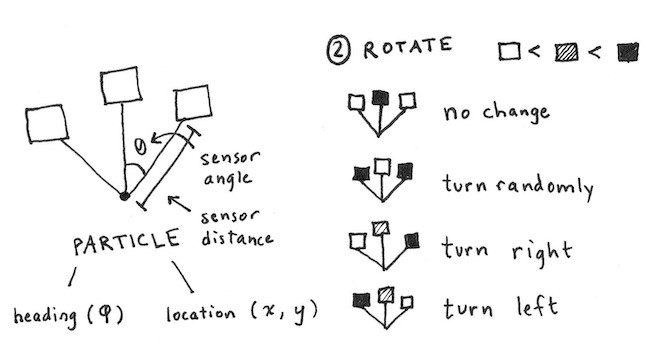 θ
sensor
angle
sensor
distance
PARTICLE
heading (φ)
location (x, y)
② ROTATE
< <
no change
turn randomly
turn right
turn left